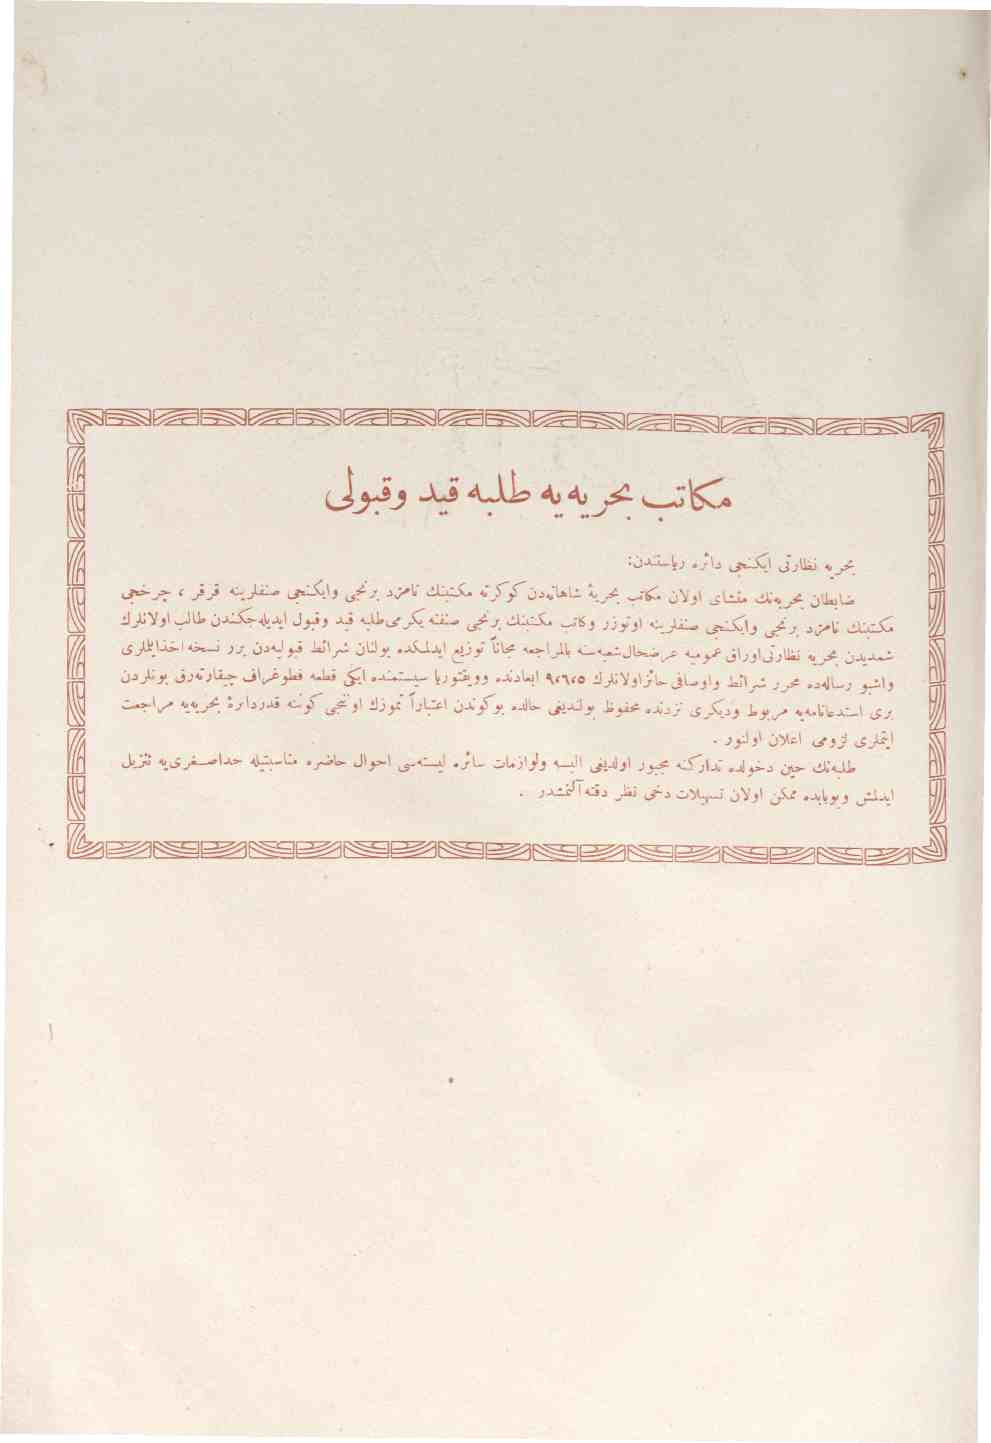 مكاتب بحريه‌يه طلبه قيد وقبولى
بحريه نظارتى ايكنجى دائره رياستندن:
ضابطان بحريه‌نك منشاى اولان مكاتب بحريۀ شاهانه‌دن كوكرته مكتبنك نامزد برنجى وايكنجى صنفلرينه قرقر ، چرخجى
مكتبنك نامزد برنجى وايكنجى صنفلرينه اوتوزر وكاتب مكتبنك برنجى صنفنه يكرمى طلبه قيد وقبول ايديله‌جكندن طالب اولانلرك
شمديدن بحريه نظارتى اوراق عموميه عرضحال شعبه‌سنه بالمراجعه مجاناً توزيع ايدلمكده بولنان شرائط قبوليه‌دن برر نسخه اخذايلملرى
واشبو رساله‌ده محرر شرائط واوصافى حائز اولانلرك ٩،٦،٥ ابعادنده وويقتوريا سيستمنده ايكى قطعه فطوغراف چيقارته‌رق بونلردن
برى استدعانامه‌يه مربوط وديكرى نزدنده محفوظ بولنديغى حالده بوكوندن اعتباراً تموزك اوننجى كوننه قدردائرۀ بحريه‌يه مراجعت
ايتملرى لزومى اعلان اولنور .
طلبه‌نك حين دخولده تداركنه مجبور اولديغى البسه ولوازمات سائره ليسته‌سى احوال حاضره مناسبتيله حداصغرى‌يه تنزيل
ايدلمش وبوبابده ممكن اولان تسهيلات دخى نظر دقته آلنمشدر .